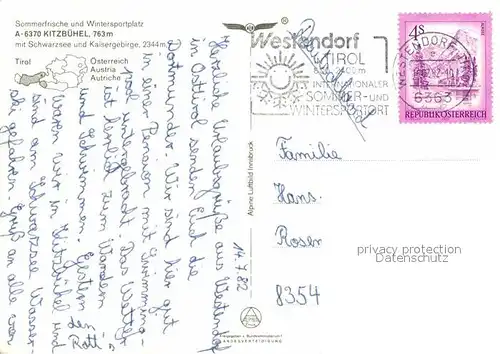 Sommerfrische und Wintersportplatz
A-6370 KITZBÜHEL, 763 m
mit Schwarzsee und Kaisergebirge, 2344 m,
Tirol
Österreich
Austria
Autriche
Westendorf
TIROL
INTERNATIONALER
SOMMER- UND
WINTERSPORTORT
WESTENDORF
6363
4 S
REPUBLIK ÖSTERREICH
Alpine Luftbild Innsbruck
14.7.82
Herzliche Urlaubsgrüße aus Westendorf
in Osttirol senden Euch die
Dortmunder. Wir sind hier gut
in einer Pension mit Swimming-
pool untergebracht. Das Wetter
ist herrlich zum Wandern
und Schwimmen. Gestern
waren wir in Kitzbühel und
sind am Schwarzsee Wasser-
ski gefahren. Gruß an alle von
den
Rott's
Familie
Hans
Rosen
8354
privacy protection
VEROTANSICHTEN.COM
LANDESVERTEIDIGUNG